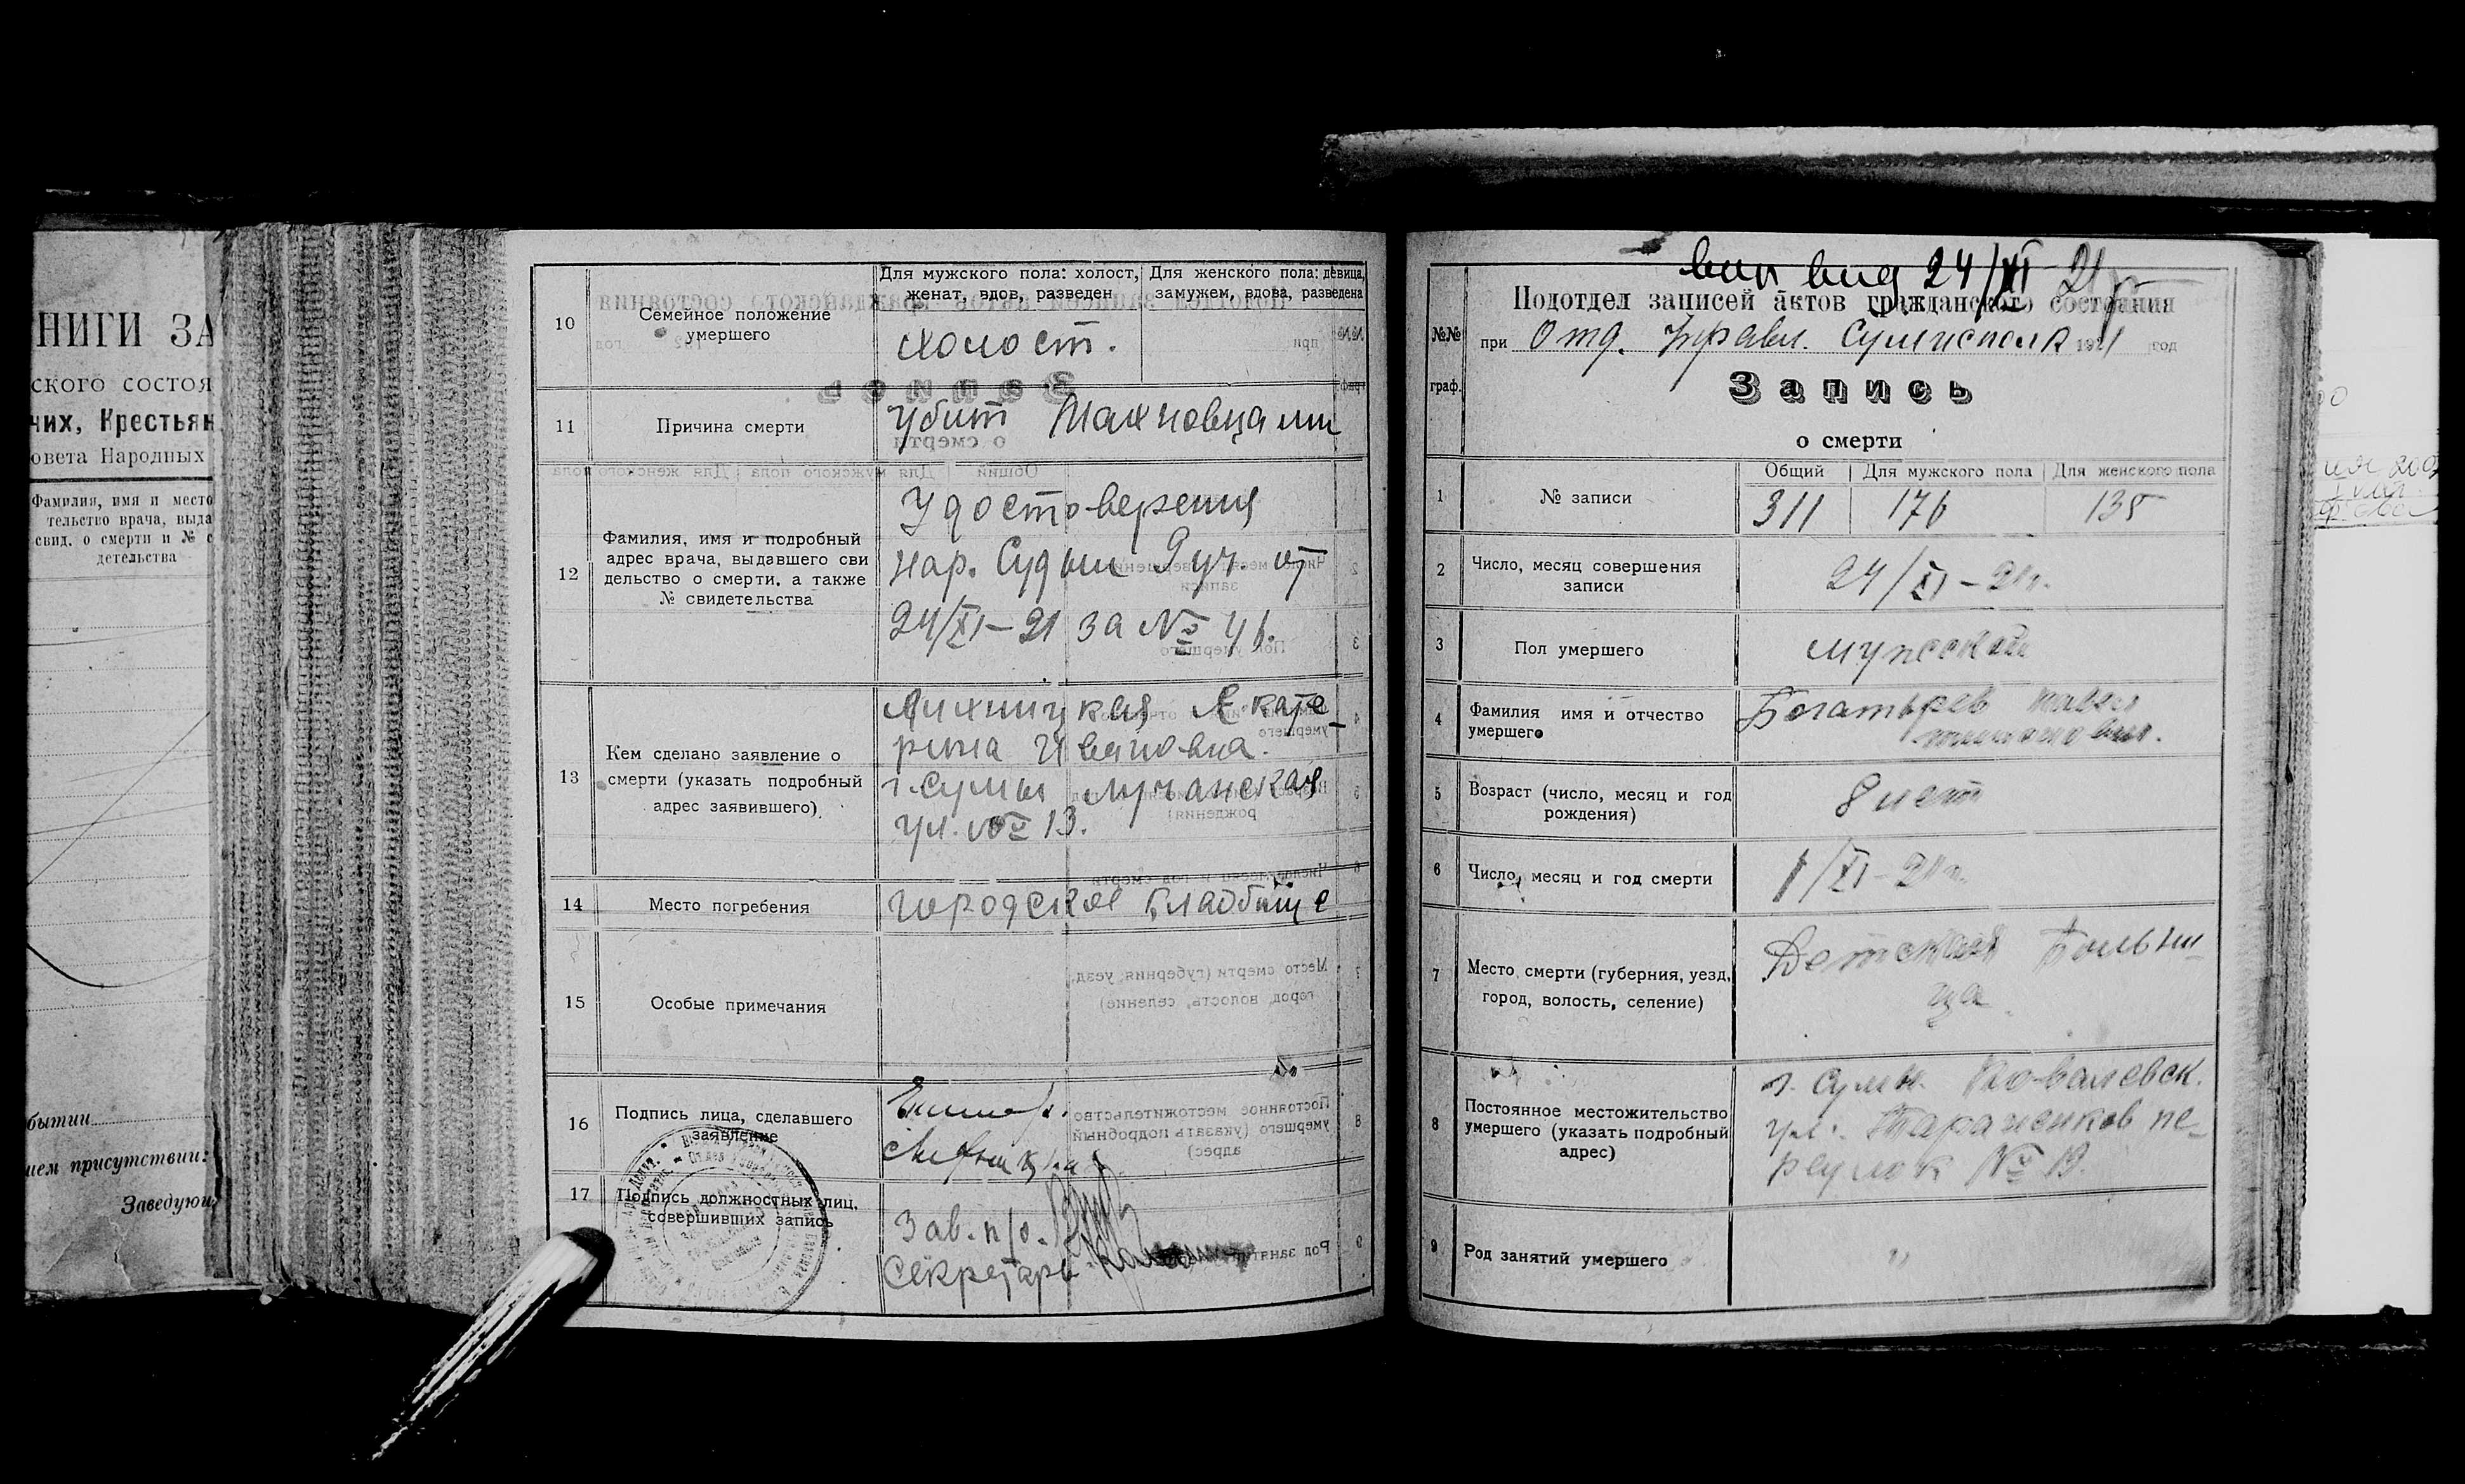 НИГИ ЗА
ского состоя
чих, Крестьян
овета Народных
Фамилия, имя и место
тельство врача, выда
свид. о смерти и № с
детельства
бытии
ием присутствии:
Заведую
10
Семейное положение
умершего
Для мужского пола: холост,
женат, вдов, разведен
Для женского пола: девица,
замужем, вдова, разведена
холост.
11
Причина смерти
Убит Махновцами
12
Фамилия, имя и подробный
адрес врача, выдавшего сви
дельство о смерти, а также
№ свидетельства
Удостоверения
Нар. Судьи 9 уч от
24/XI–21 за № 46.
13
Кем сделано заявление о
смерти (указать подробный
адрес заявившего)
Екате
рина Ивановна.
г. Сумы Лучанская
ул. № 13.
14
Место погребения
городское кладбище
15
Особые примечания
16
Подпись лица, сделавшего
заявление
17
Подпись должностных лиц,
совершивших запись
Зав. п/о.
Секретарь
вид 24/XI 21
№№
граф.
Подотдел записей актов гражданского состояния
при Отд. Управл. Сумисполк 1921 год
Запись
о смерти
1
№ записи
Общий
Для мужского пола
Для женского пола
311
176
135
2
Число, месяц совершения
записи
24/XI–21г.
3
Пол умершего
мужской
4
Фамилия имя и отчество
умершего
Богатырев Павел
5
Возраст (число, месяц и год
рождения)
8 лет
6
Число, месяц и год смерти
1/XI–21г.
7
Место смерти (губерния, уезд,
город, волость, селение)
Детская Больни–
ца
8
Постоянное местожительство
умершего (указать подробный
адрес)
г. Сумы. Ковалевск.
ул. пе–
реулок № 13.
9
Род занятий умершего
"